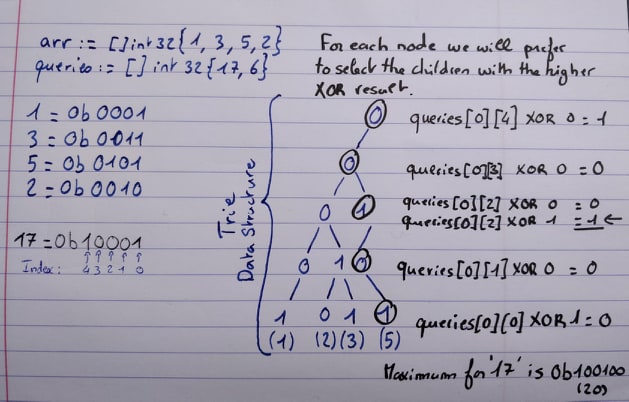 arr := []int32{1, 3, 5, 2}
queries := []int32{17, 6}
For each node we will prefer
to select the children with the higher
XOR result.
1 = 0b0001
3 = 0b0011
5 = 0b0101
2 = 0b0010
17 = 0b10001
↑ ↑ ↑ ↑ ↑
Index: 4 3 2 1 0
Trie
Data Structure
0
0
0 1
0 1 0
1 0 1 1
(1) (2) (3) (5)
queries[0][4] XOR 0 = 1
queries[0][3] XOR 0 = 0
queries[0][2] XOR 0 = 0
queries[0][2] XOR 1 = 1 ←
queries[0][1] XOR 0 = 0
queries[0][0] XOR 1 = 0
Maximum for '17' is 0b100100
(20)